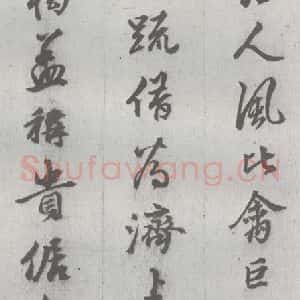 人風比翕巨
疏借為濟上
益稱貴倨
Shufawang.CN